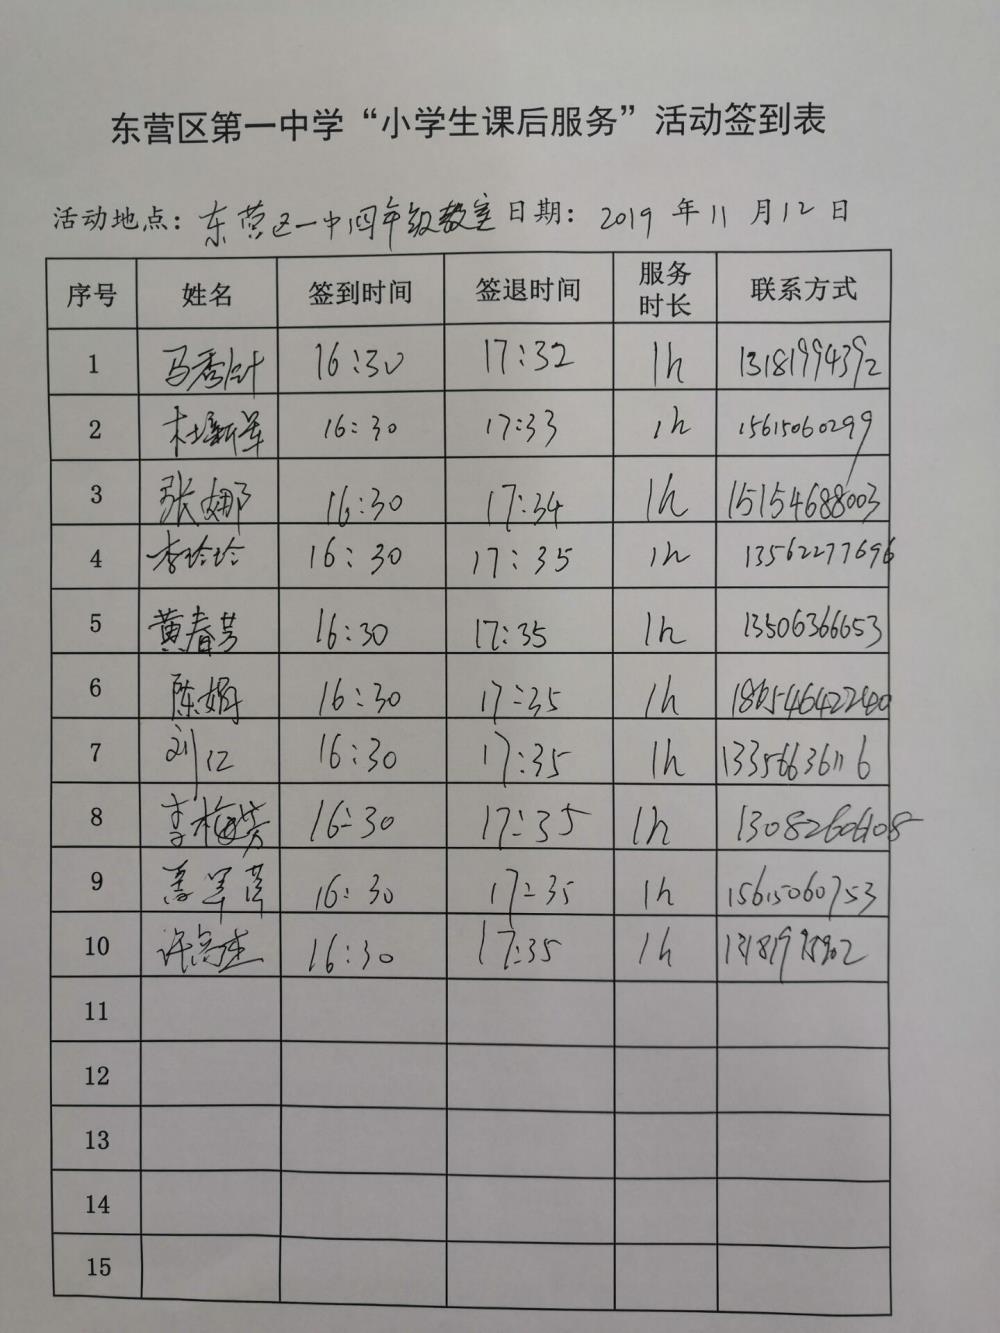 东营区第一中学“小学生课后服务”活动签到表
活动地点：东营区一中四年级教室 日期：2019年11月12日
序号 姓名 签到时间 签退时间 服务时长 联系方式
1 马秀 16:30 17:32 1h 13181994392
2 杜新军 16:30 17:33 1h 15615060299
3 张娜 16:30 17:34 1h 15154688003
4 李玲玲 16:30 17:35 1h 13562277696
5 黄春芳 16:30 17:35 1h 13506366653
6 陈娟 16:30 17:35 1h
7 刘江 16:30 17:35 1h 13356636116
8 李梅芳 16:30 17:35 1h 13082606108
9 16:30 17:35 1h 15615060753
10 许 16:30 17:35 1h
11
12
13
14
15